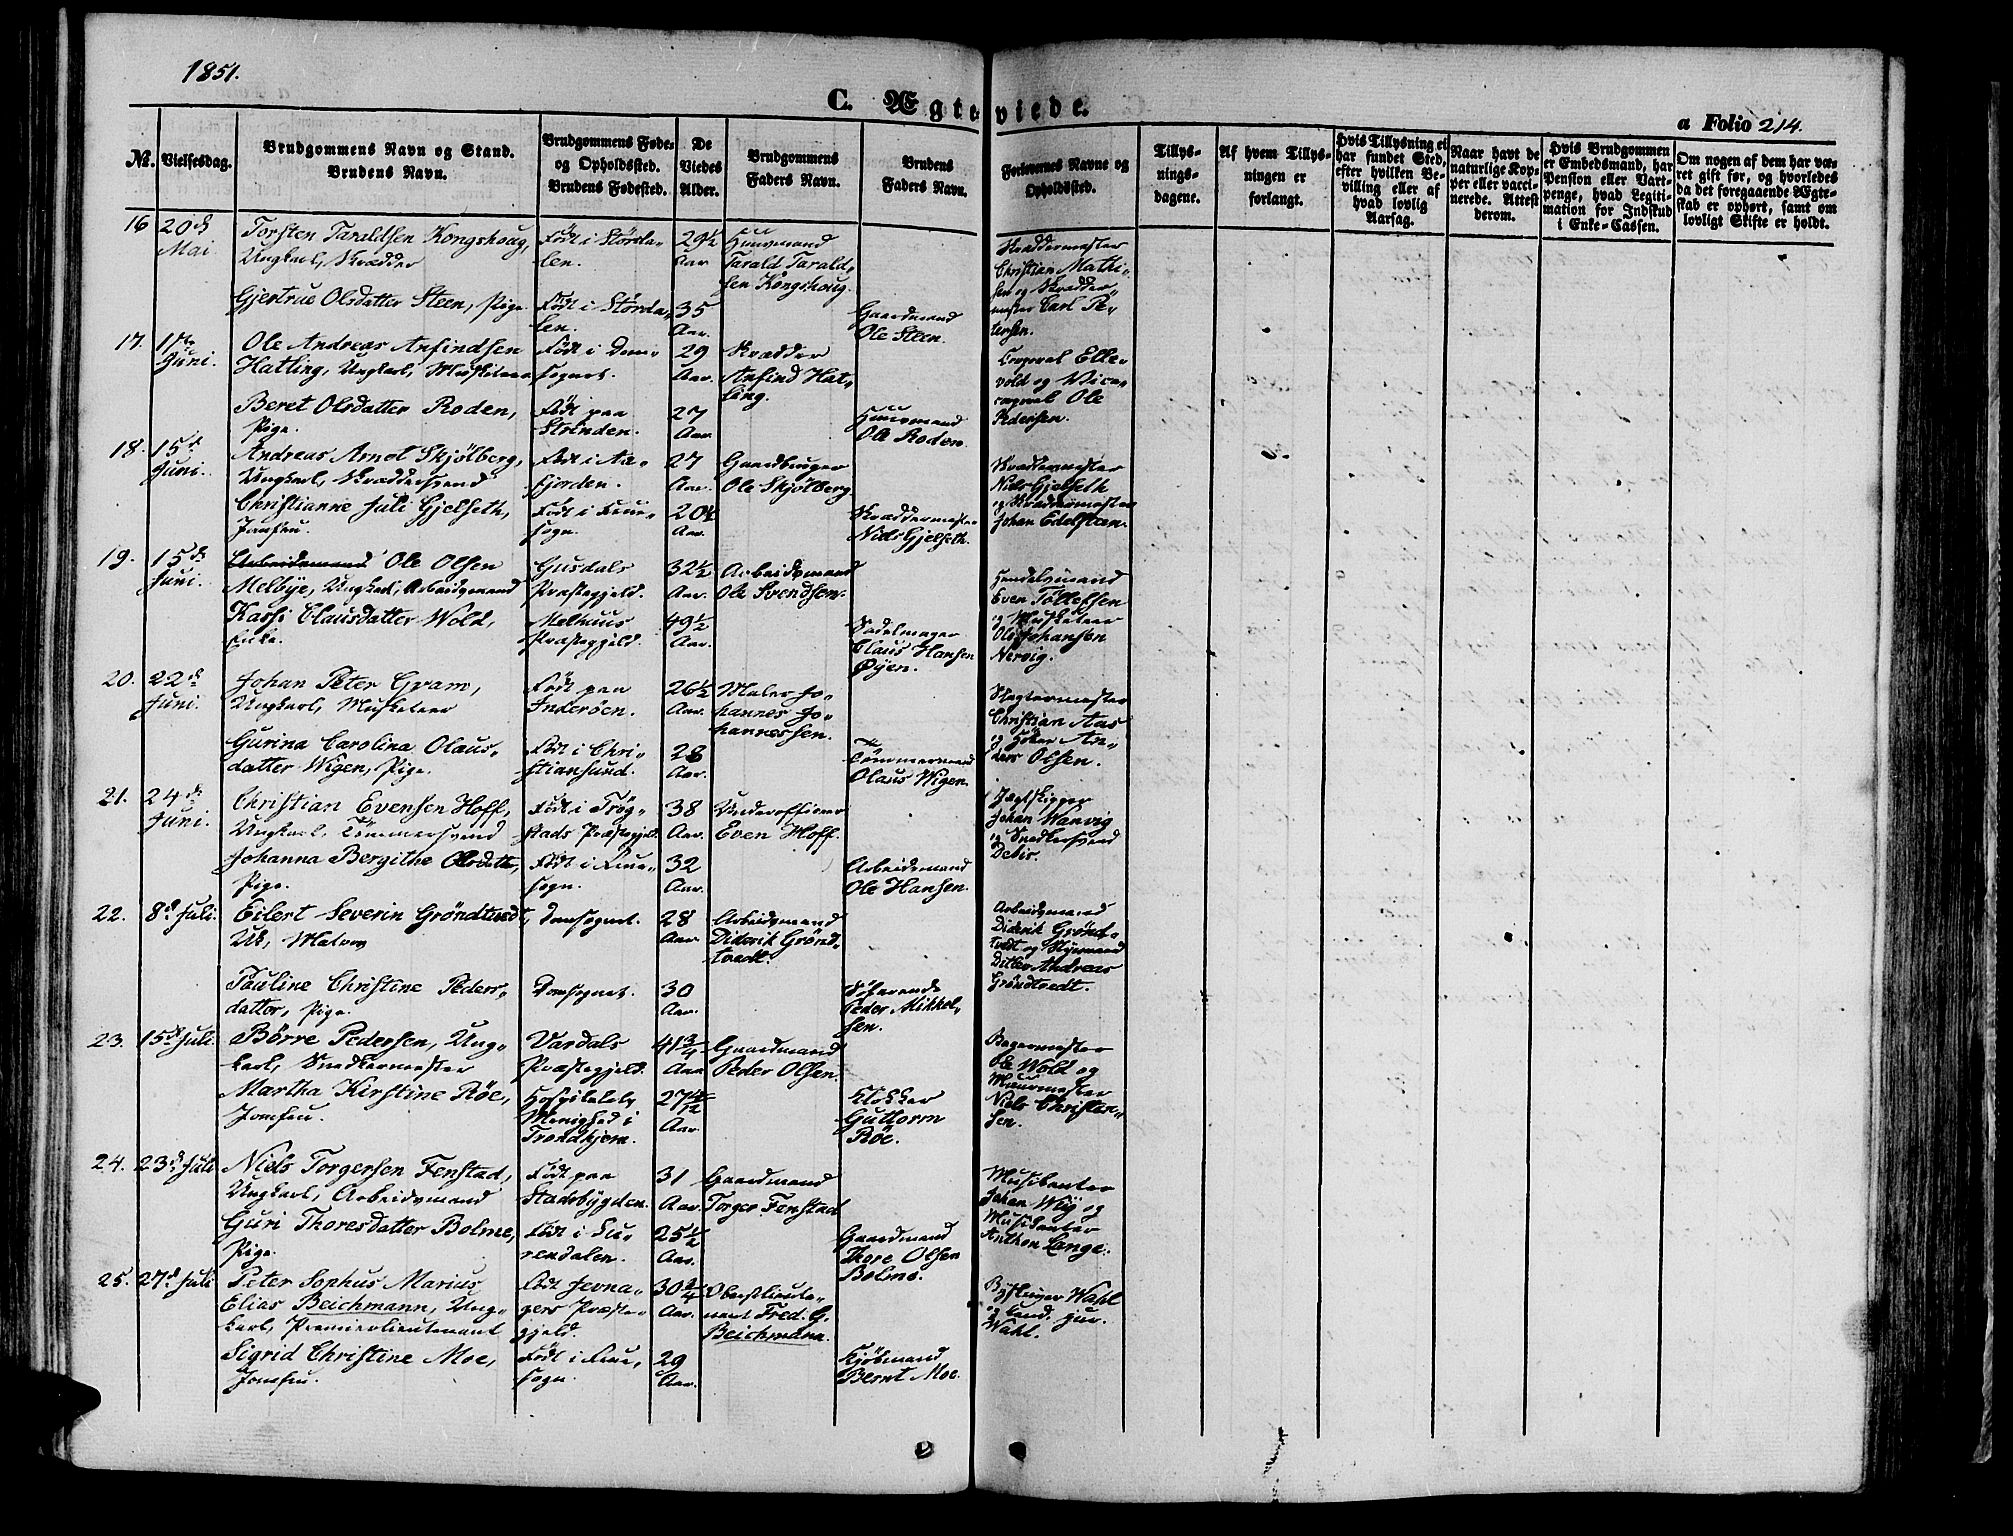 1851.
C. Ægteviede.
a Folio 214.
No. Vielsesdag. Brudgommens Navn og Stand. Brudens Navn. Brudgommens Føde- og Opholdssted. Brudens Fødested. De Viedes Alder. Brudgommens Faders Navn. Brudens Faders Navn. Forlovernes Navne og Opholdssted. Tillysningsdagene. Af hvem Tillysningen er forlangt. Hvis Tillysning ei har fundet Sted, efter hvilken Bevilling eller af hvad lovlig Aarsag. Naar havt de naturlige Kopper eller vaccinerede. Attest derom. Hvis Brudgommen er Embedsmand, har Pension eller Vartpenge, hvad Legitimation for Indskud i Enke-Cassen. Om nogen af dem har været gift før, og hvorledes da det foregaaende Ægteskab er ophørt, samt om lovligt Skifte er holdt.
16 20de Mai
Torsten Taraldsen Kongshoug, Ungkarl, Skrædder
Født i Størdalen.
29½ Aar
Huusmand Tarald Taraldsen Kongshoug.
Skræddermester Christian Mathisen og Skræddermester Carl Petersen.
Gjertrue Olsdatter Steen, Pige
Født i Størdalen.
35 Aar.
Gaardmand Ole Steen.
17. Juni.
Ole Andreas Anfindsen Hatling, Ungkarl, Musketeer
Født i Domsognet.
29 Aar.
Skrædder Anfind Hatling.
Corporal Ellevold og Vicecorporal Ole Pedersen.
Beret Olsdatter Roden, Pige.
Født paa Strinden.
27 Aar.
Huusmand Ole Roden.
18. 15de Juni.
Andreas Arnol Skjølberg, Ungkarl, Skræddersvend
Født i Aafjorden.
27 Aar.
Gaardbruger Ole Skjølberg
Skræddermester Niels Gjelseth og Skræddermester Johan Edelsteen.
Christianne Juli Gjelseth, Jomfru.
Født i Fruesogn.
20¼ Aar.
Skræddermester Niels Gjelseth.
19. 15de Juni.
Arbeidsmand Ole Olsen Melbye, Ungkarl, Arbeidsmand
Gusdals Præstegjeld.
32½ Aar.
Arbeidsmand Ole Svendsen.
Handelsmand Even Tøllefsen og Musketeer Ole Johansen Nervig.
Karsi Clausdatter Wold, Enke.
Melhuus Præstegjeld.
49½ Aar.
Sadelmager Claus Hansen Øyen.
20. 22de Juni.
Johan Peter Gram, Ungkarl, Musketeer
Født paa Inderøen.
26½ Aar.
Maler Johannes Johannessen.
Slagtermester Christian Aas og Høker Anders Olsen.
Gurina Carolina Olausdatter Wigen, Pige.
Født i Christiansund.
28 Aar.
Tømmermand Olaus Wigen.
21. 24de Juni.
Christian Evensen Hoff, Ungkarl, Tømmersvend
Født i Trøgstads Præstegjeld.
38 Aar.
Underofficier Even Hoff.
Jægtskipper Johan Wanvig og Snedkersvend Debis.
Johanna Bergithe Olsdatter, Pige.
Født i Fruesogn.
32 Aar.
Arbeidsmand Ole Hansen.
22. 8de Juli.
Eilert Severin Grøndtvedt, Uk, Matros
Domsognet.
28 Aar.
Arbeidsmand Diderik Grøndtvedt.
Arbeidsmand Diderik Grøndtvedt og Styrmand Ditlev Andreas Grøndtvedt.
Pauline Christine Pedersdatter, Pige.
Domsognet.
30 Aar.
Søfarende Peder Mikkelsen.
23. 15de Juli.
Børre Pedersen, Ungkarl, Snedkermester
Vardals Præstegjeld.
41¾ Aar
Gaardmand Peder Olsen.
Bagermester Ole Wold og Muurmester Niels Christensen.
Martha Kirstine Röe, Jomfru.
Hospitalets Menighed i Trondhjem.
27 4/12 Aar.
Klokker Guttorm Röe.
24. 23de Juli
Niels Torgersen Fenstad, Ungkarl, Arbeidsmand
Født paa Stadsbygden.
31 Aar.
Gaardmand Torger Fenstad
Musikanter Johan Wiig og Musikanter Anthon Lange.
Guri Thoresdatter Bolme, Pige.
Født i Surendalen.
25½ Aar.
Gaardmand Thore Olsen Bolme.
25. 27de Juli
Peter Sophus Marius Elias Beichmann, Ungkarl, Premierlieutenant
Født Jevnagers Præstegjeld.
30¾ Aar.
Oberstlieutenant Fred. G. Beichmann.
Byskriver Wahl og Cand. jur. Wahl.
Sigrid Christine Moe, Jomfru.
Født i Fruesogn.
29 Aar.
Kjøbmand Bernt Moe.